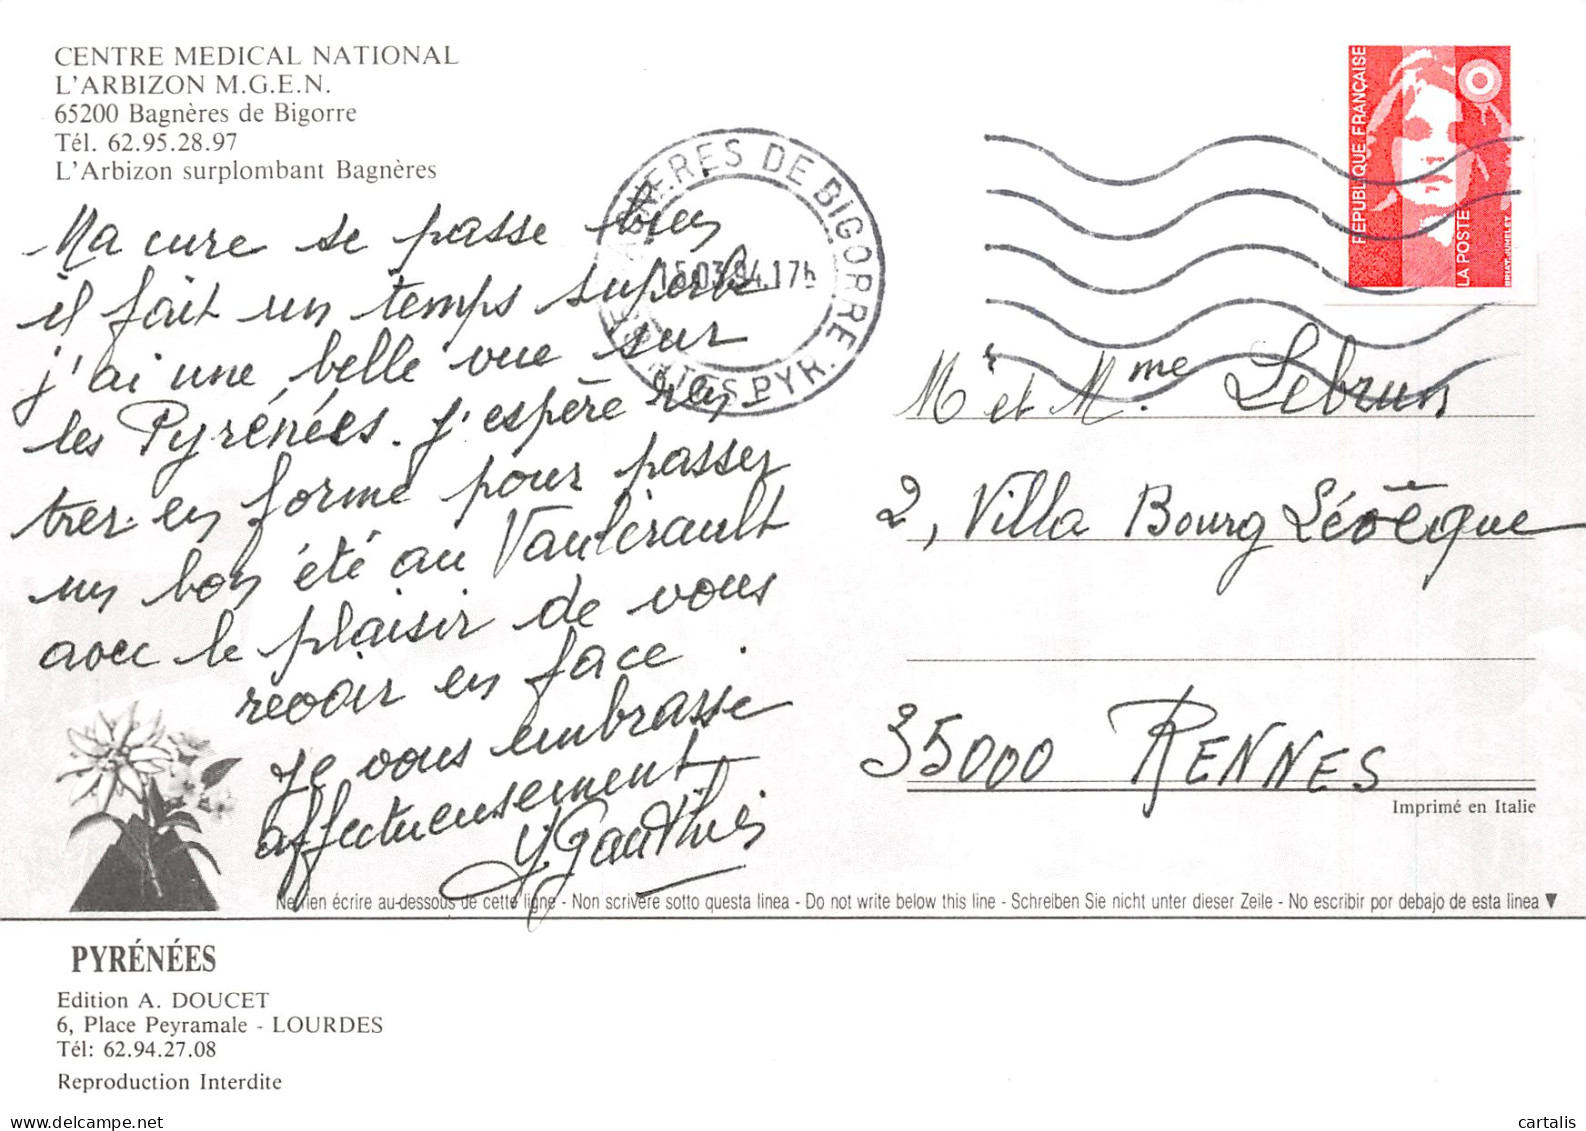 CENTRE MEDICAL NATIONAL
L'ARBIZON M.G.E.N.
65200 Bagnères de Bigorre
Tél. 62.95.28.97
L'Arbizon surplombant Bagnères
Ma cure se passe bien
il fait un temps superbe
j'ai une belle vue sur
les Pyrénées. J'espère ren
trer en forme pour passer
un bon été au
avec le plaisir de vous
revoir en face.
Je vous embrasse
affectueusement
Y Gauthier
BAGNERES DE BIGORRE
15.03.94.17h
HAUTES PYR.
REPUBLIQUE FRANÇAISE
LA POSTE
BRIAT-JUMELET
Mr et Mme. Lebrun
2, Villa Bourg Lévêque
35000 RENNES
Imprimé en Italie
Ne rien écrire au-dessous de cette ligne - Non scrivere sotto questa linea - Do not write below this line - Schreiben Sie nicht unter dieser Zeile - No escribir por debajo de esta linea ▼
PYRÉNÉES
Edition A. DOUCET
6, Place Peyramale - LOURDES
Tél: 62.94.27.08
Reproduction Interdite
delcampe.net
cartalis